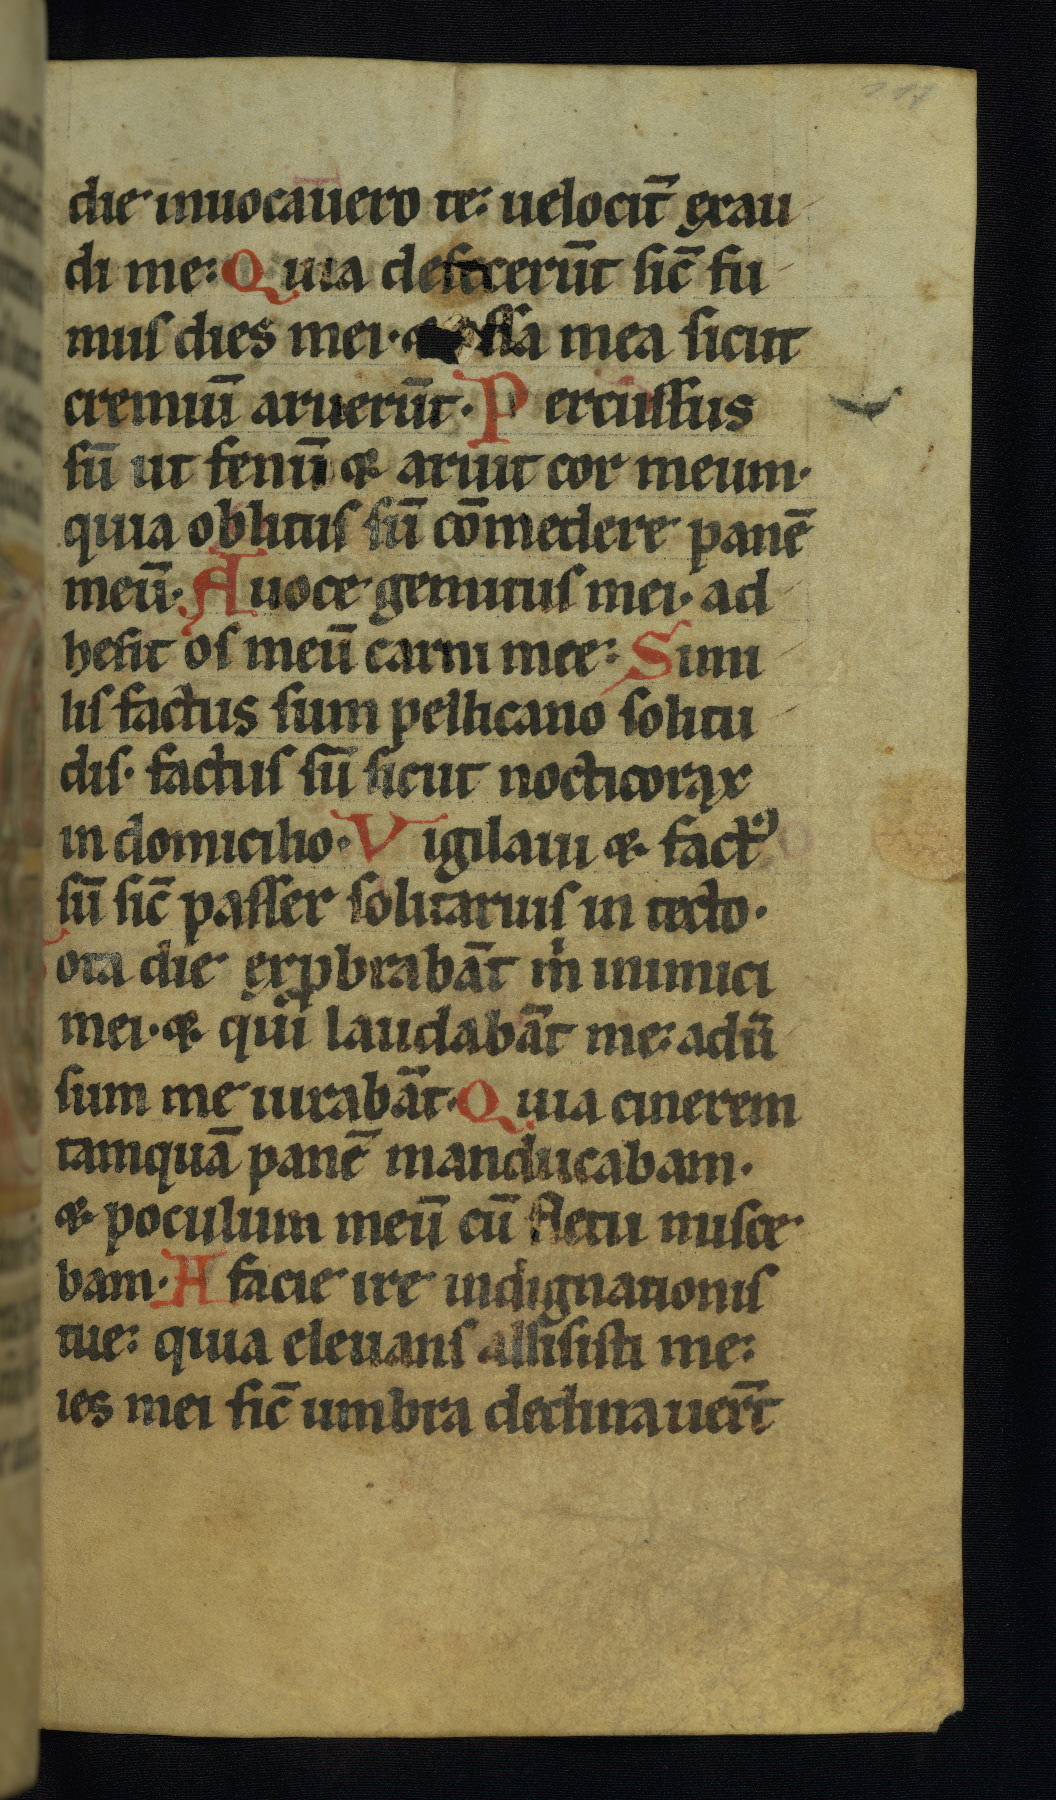 die inuocauero te: uelocit̄ exau
di me: Quia defecerūt sic̄ fu
mus dies mei· ossa mea sicut
cremiū aruerūt· Percussus
sū ut fenū & aruit cor meum·
quia oblitus sū cōmedere panē
meū· A uoce gemitus mei· ad
hesit os meū carni mee: Simi
lis factus sum pellicano solitu
dis· factus sū sicut nocticorax
in domicilio· Vigilaui & fact᾿
sū sic̄ passer solitarius in tecto·
ota die exꝓbrabāt m̍ inimici
mei· & qui laudabāt me: adū
sum me iurabāt· Quia cinerem
tamquā panē manducabam·
& poculum meū cū fletu misce
bam· A facie ire indignationis
tue: quia eleuans allisisti me:
ies mei sic̄ umbra declinauer̄t